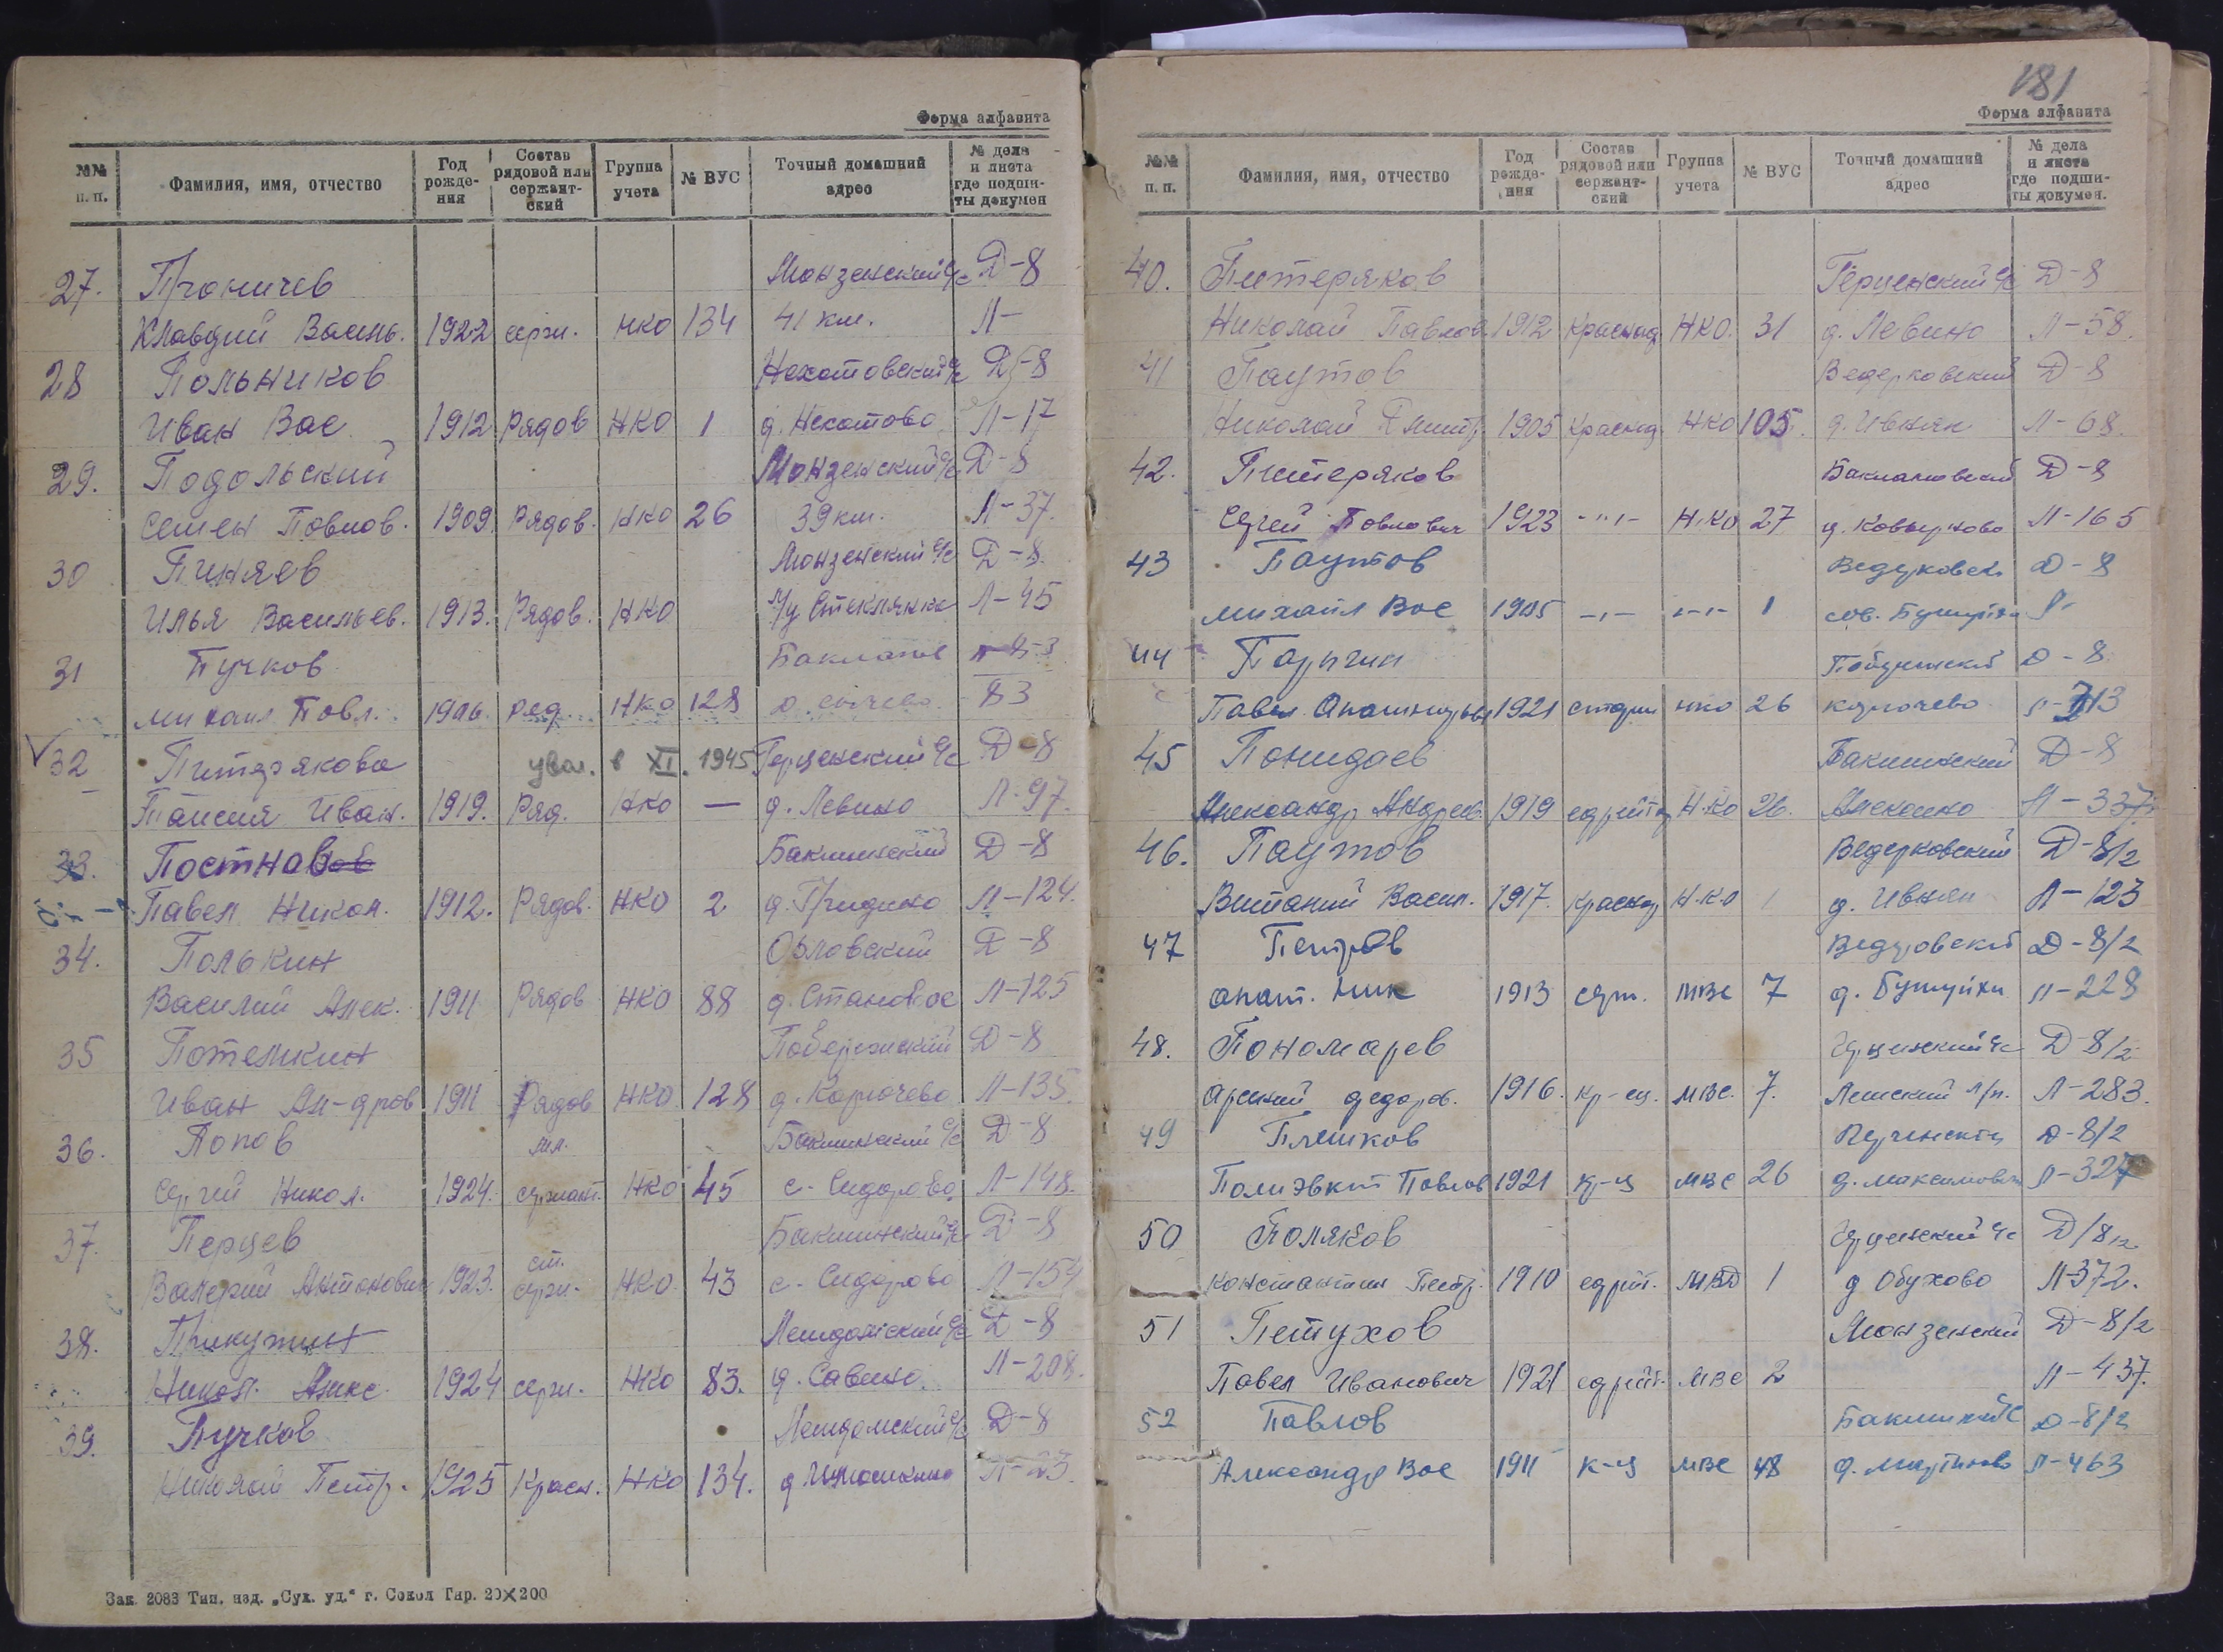 Форма алфавита
№№ п. п. Фамилия, имя, отчество Год рожде- ния Состав рядовой или сержант- ский Группа учета № ВУС Точный домашний адрес № дела и листа где подши- ты докумен
27. Проничев Монзенский с/с Д-8
Клавдий Василь. 1922 серж. НКО 134 41 км. Л-
28 Польников Д-8
Иван Вас 1912 Рядов НКО 1 Л-17
29. Подольский Монзенский с/с Д-8
Семен Павлов. 1909. Рядов. НКО 26 39 км. Л-37.
30 Пиняев Монзенский с/с Д-8.
Илья Васильев. 1913. Рядов. НКО Л-45
31 Пучков
Михаил Павл. 1906. ряд. НКО 128 83
32 Питерякова увол. в XI. 1945 Герценский с/с Д-8
Таисия Иван. 1919. Ряд. НКО — д. Левино Л-97.
33. Постнов Бакшинский Д-8
Павел Никол. 1912. Рядов. НКО 2 Л-124.
34. Полькин Орловский Д-8
Василий Алек. 1911 Рядов НКО 88 д. Становое Л-125
35 Потемкин Д-8
Иван Ал-дров 1911 Рядов НКО 128 д. Корючево Л-135.
36. Попов мл. Бакшинский с/с Д-8
Сергей Никол. 1924. сержант. НКО 45 с. Сидорово Л-148.
37. Перцев Бакшинский с/с Д-8
Валерий Антонович 1923. ст. серж. НКО 43 с. Сидорово Л-154
38. Прикутин Д-8
Никол. Алекс. 1924 серж. НКО 83. д. Савино. Л-208.
39. Пучков Д-8
Николай Петр. 1925 Красн. НКО 134.
Зак. 2083 Тип. изд. „Сух. уд.“ г. Сокол Тир. 20×200
181
Форма алфавита
№№ п. п. Фамилия, имя, отчество Год рожде- ния Состав рядовой или сержант- ский Группа учета № ВУС Точный домашний адрес № дела и листа где подши- ты докумен.
40. Питеряков Герценский с/с Д-8
Николай Павлов. 1912 НКО. 31 д. Левино Л-58.
41 Паутов Ведерковский Д-8
Николай Дмитр. 1905 НКО 105. д. Ивняк Л-68.
42. Питеряков Д-8
Сергей Павлович 1923 -"- НКО 27 Л-165
43 Паутов Д-8
Михаил Вас 1 Л-
44 Парыгин Д-8
Павел 1921 НКО 26 корючево
45 Понидаев Бакшинский Д-8
Александр Андреев. 1919 НКО 26. Алексино Л-337.
46. Паутов Ведерковский Д-8/2
Виталий Васил. 1917. Н.К.О д. Ивняк Л-123
47 Петров Д-8/2
Ник 1913 серж. МВС 7 Л-228
48. Пономарев Д-8/2
Арсений федоров. 1916. кр-ец. МВС. 7. Л-283.
49 Плешков Д-8/2
Полиэвкт Павлов 1921 к-ц МВС 26 Л-327
50 Поляков Герценский с/с Д/8/2
Константин Петр. 1910 ефрейт. 1 д Обухово Л-372.
51 Петухов Монзенский Д-8/2
Павел Иванович 1921 ефрейт. МВС 2 Л-437.
52 Павлов Д-8/2
Александр Вас 1911 к-ц МВС 48 Л-463